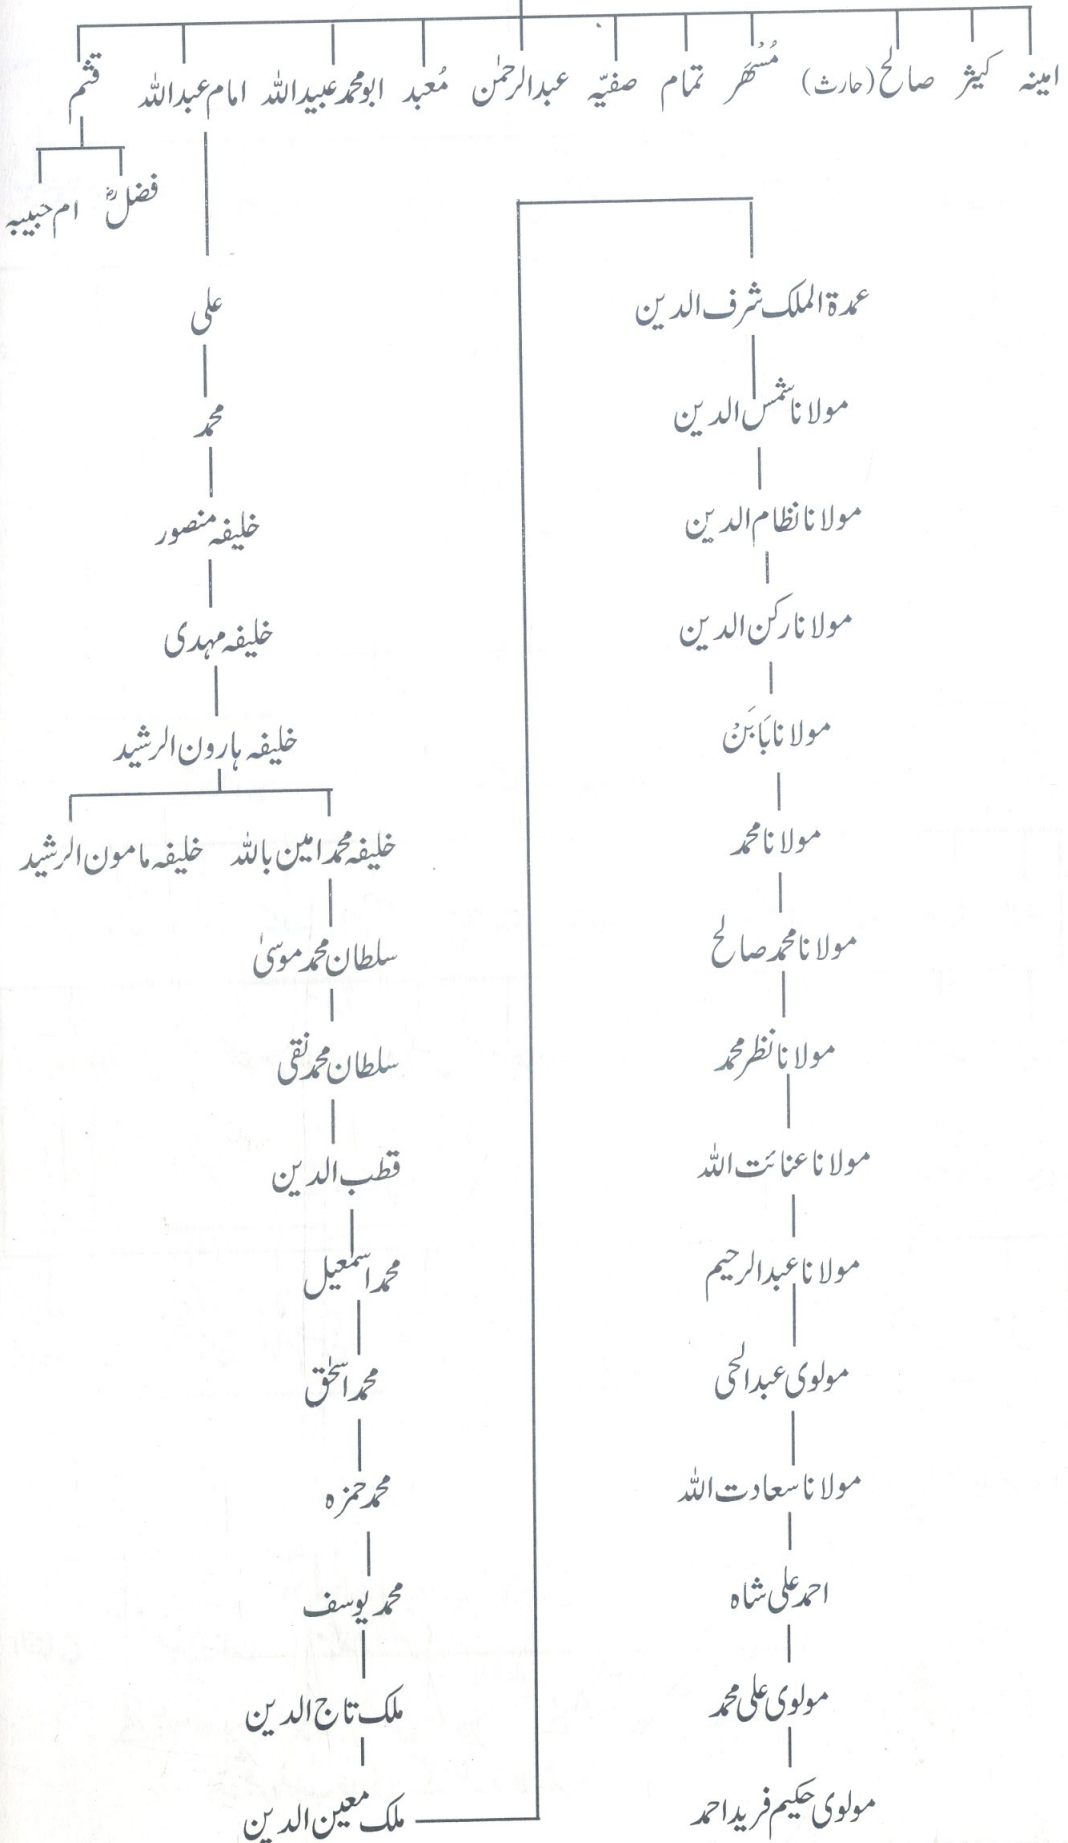 امینہ کیثر صالح (حارث) مُسْہَر تمام صفیّہ عبدالرحمٰن مُعبد ابو محمد عبیداللہ امام عبداللہ قثم
فضلؓ ام حبیبہ
علی
محمد
خلیفہ منصور
خلیفہ مہدی
خلیفہ ہارون الرشید
خلیفہ محمد امین باللہ خلیفہ مامون الرشید
سلطان محمد موسیٰ
سلطان محمد نقی
قطب الدین
محمد اسمٰعیل
محمد اسحٰق
محمد حمزہ
محمد یوسف
ملک تاج الدین
ملک معین الدین
عمدۃ الملک شرف الدین
مولانا شمس الدین
مولانا نظام الدین
مولانا رکن الدین
مولانا بَابَنْ
مولانا محمد
مولانا محمد صالح
مولانا نظر محمد
مولانا عنائت اللہ
مولانا عبدالرحیم
مولوی عبدالحی
مولانا سعادت اللہ
احمد علی شاہ
مولوی علی محمد
مولوی حکیم فرید احمد